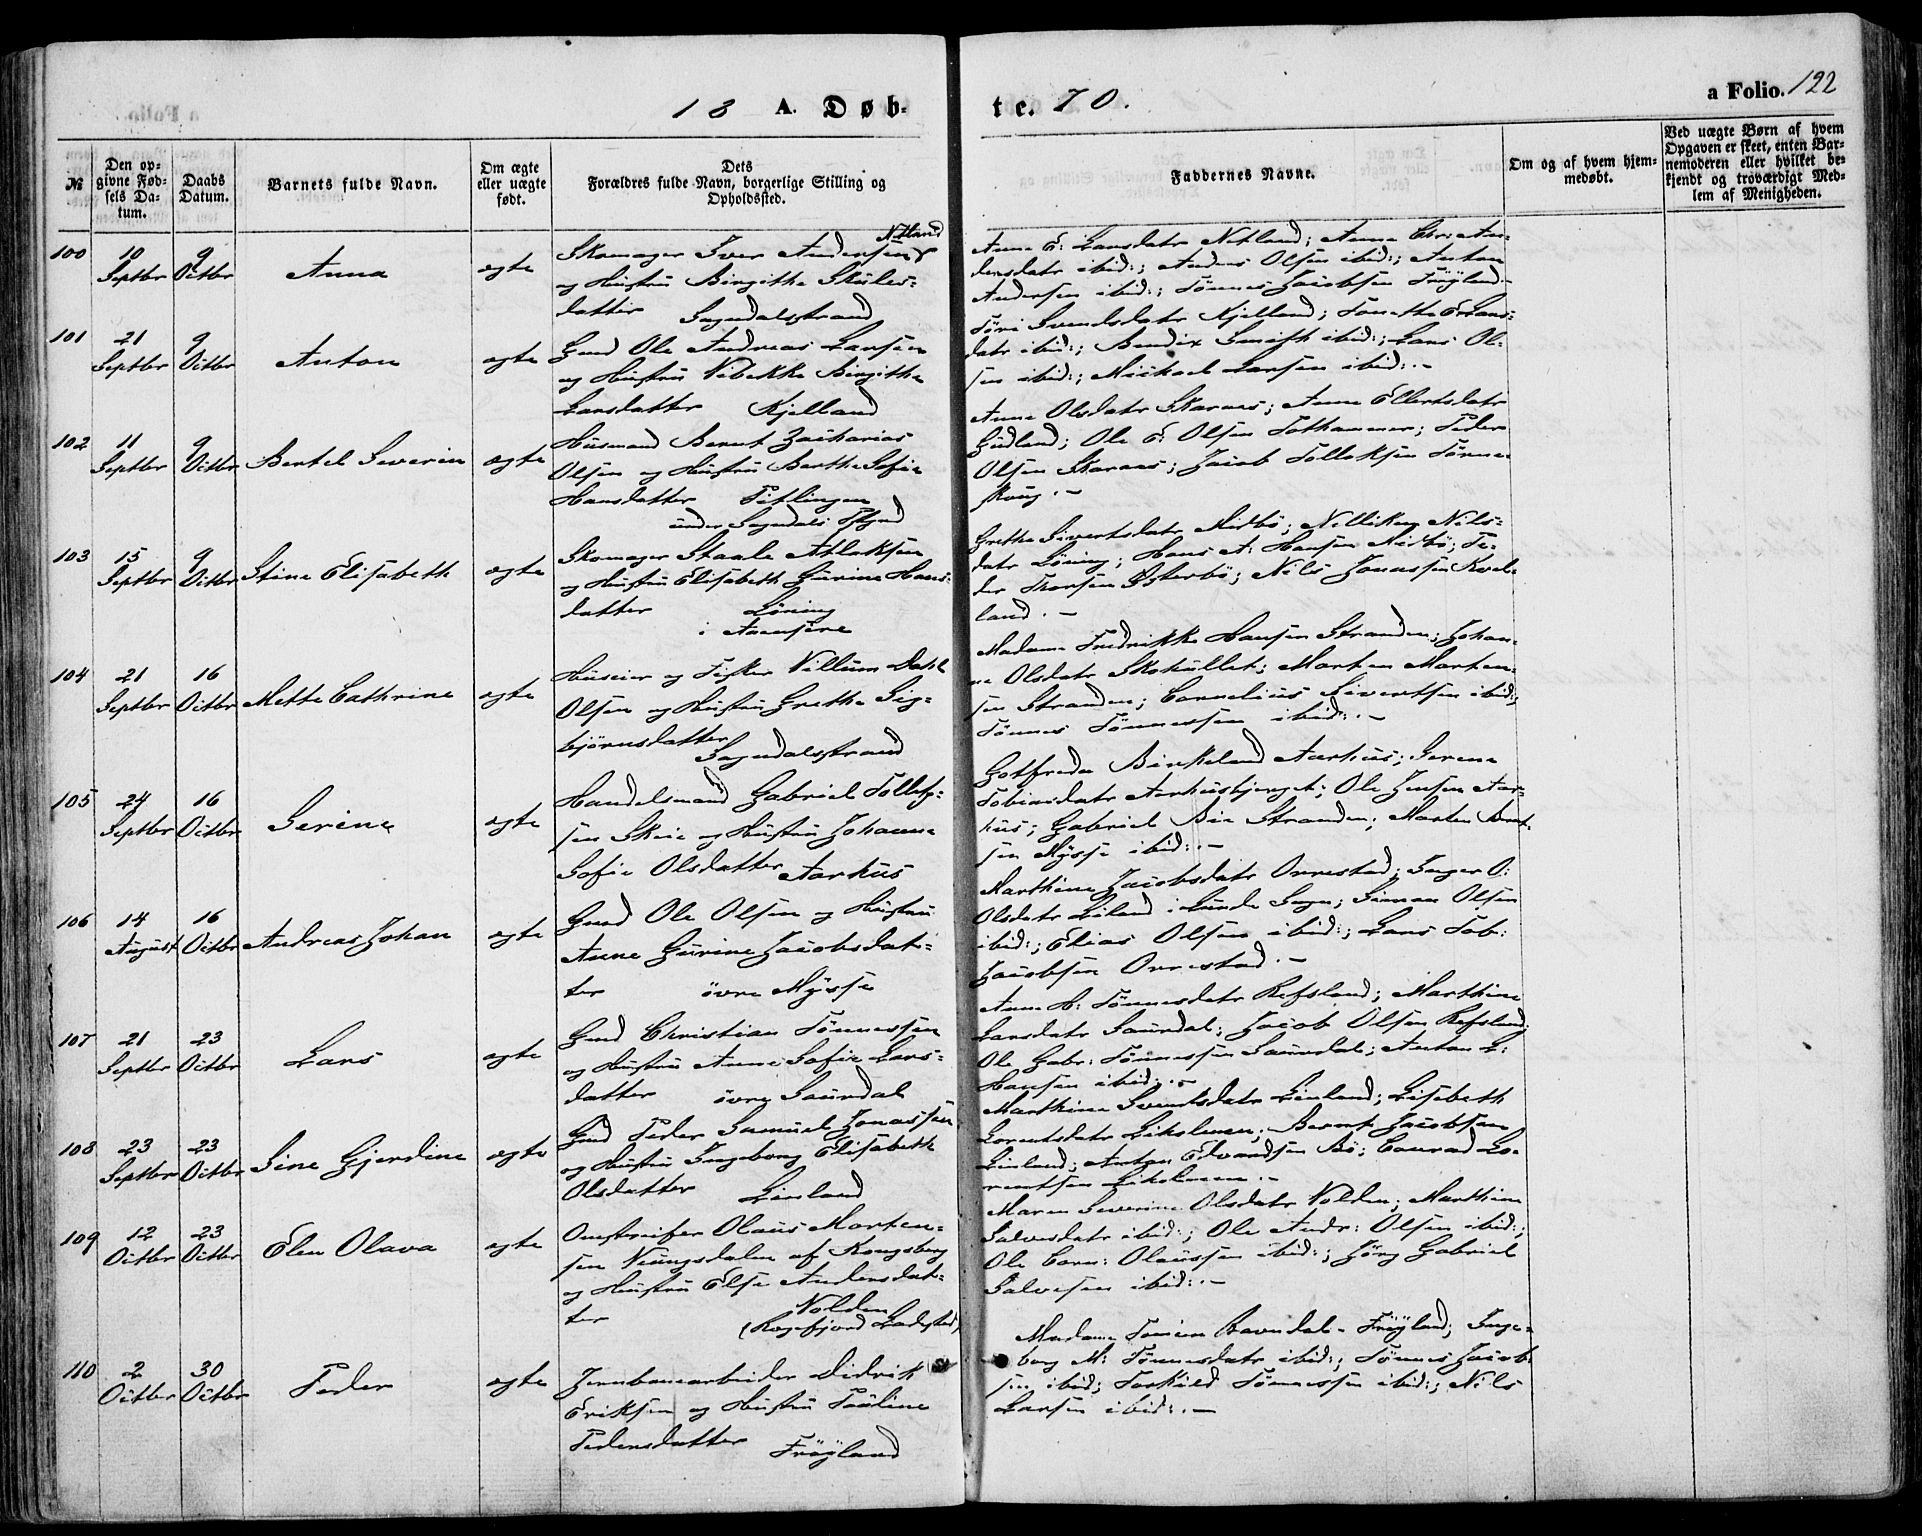 18 A. Døb-
te. 70.
a Folio. 122
№
Den op-
givne Fød-
sels Da-
tum.
Daabs
Datum.
Barnets fulde Navn.
Om ægte
eller uægte
født.
Dets
Forældres fulde Navn, borgerlige Stilling og
Opholdsted.
Faddernes Navne.
Om og af hvem hjem-
medøbt.
Ved uægte Børn af hvem
Opgaven er skeet, enten Bar-
nemoderen eller hvilket be-
kjendt og troværdigt Med-
lem af Menigheden.
100
10
Septbr
9
Octbr
Anna
ægte
Netland
Skomager Iver Andersen
og Hustru Birgithe Skules-
datter Sogndalstrand
Anne E: Larsdatr Netland; Anne Chr: An-
dersdatr ibid:; Anders Olsen ibid:; Anton
Andersen ibid:; Tönnes Jacobsen Fröyland.-
101
21
Septbr
9
Octbr
Anton
ægte
Gmd Ole Andreas Larsen
og Hustru Vibekke Birgithe
Larsdatter Kjelland
Töri Svendsdatr Kjelland; Tonette
datr ibid:; Bendix ibid:; Lars Ol-
sen ibid:; Mickael Larsen ibid:.-
102
11
Septbr
9
Octbr
Bertel Severin
ægte
Husmand Bernt Zacharias
Olsen og Hustru Berthe Sofie
Hansdatter Titlingen
under Sogndals
Anne Olsdatr Skaraas; Anne Ellertsdatr
Gudland; Ole E: Olsen Tothammer; Peder
Olsen Skaraas; Jacob Tollaksen Tönne-
skoug.-
103
15
Septbr
9
Octbr
Stine Elisabeth
ægte
Skomager Staale Atlaksen
og Hustru Elisabeth Gurine Hans-
datter Löning
i Aaensire
Grethe Sivertsdatr Midbö; Nilliken Nils-
datr Löning; Hans A: Hansen Midbö; Pe-
der Thorsen Österbö; Nils Jonassen Kvel-
land.-
104
21
Septbr
16
Octbr
Mette Cathrine
ægte
Huseier og Fisker Villum
Olsen og Hustru Grethe Sig-
björnsdatter
Sogndalstrand
Madame Fredrikke Hansen Stranden; Johan-
ne Olsdatr Skohullet; Morten Morten-
sen Stranden; Cornelius Sivertsen ibid:;
Tönnes Tönnessen ibid:.-
105
24
Septbr
16
Octbr
Serine
ægte
Handelsmand Gabriel Tollef-
sen Skeie og Hustru Johanne
Sofie Olsdatter Aarhus
Gotfreda Birkeland Aarhus; Serene
Tobiasdatr Aarhusbjerget; Ole Jensen Aar-
hus; Gabriel Bie Stranden; Morten Bernt-
sen Mysse ibid:.-
106
14
August
16
Octbr
Andreas Johan
ægte
Gmd Ole Olsen og Hustru
Anne Gurine Jacobsdat-
ter övre Mysse
Marthine Jacobsdatr Orrestad; Inger O:
Olsdatr Eiland i Lunde Sogn; Simon Olsen
ibid:; Elias Olsen ibid:; Lars Tob:
Jacobsen Orrestad.-
107
21
Septbr
23
Octbr
Lars
ægte
Gmd Christian Tönnessen
og Hustru Anne Sofie Lars-
datter övre Saurdal
Anne H: Tönnesdatr Refsland; Marthine
Larsdatr Saurdal; Jacob Olsen Refsland;
Ole Gabr: Tönnessen Saurdal; Anton L:
Hansen ibid:.-
108
23
Septbr
23
Octbr
Sine Gjerdine
ægte
Gmd Peder Samuel Jonassen
og Hustru Ingeborg Elisabeth
Olsdatter Linland
Marthine Svendsdatr Linland; Lisebeth
Lorentsdatr Eikelmen; Bernt Jacobsen
Linland; Anton Edvardsen Bö; Conrad Lo-
rentsen
109
12
Octbr
23
Octbr
Elen Olava
ægte
Olaus Morten-
sen Neungsdalen af Kongsberg
og Hustru Else Andersdat-
ter Nolden
(Regefjord Ladested)
Maren Severine Olsdatr Nolden; Marthine
Salvesdatr ibid:; Ole Andr: Olsen ibid:;
Ole Corn: Olaussen ibid:; Jörg Gabriel
Salvesen ibid:.-
110
2
Octbr
30
Octbr
Peder
ægte
Jernbanearbeider Didrik
Eriksen og Hustru Pauline
Pedersdatter Fröyland
Madame Ravndal Fröyland; Inge-
borg M: Tönnesdatr ibid:; Tönnes Jacob-
sen ibid; Torkild Tönnessen ibid:; Nils
Larsen ibid:.-